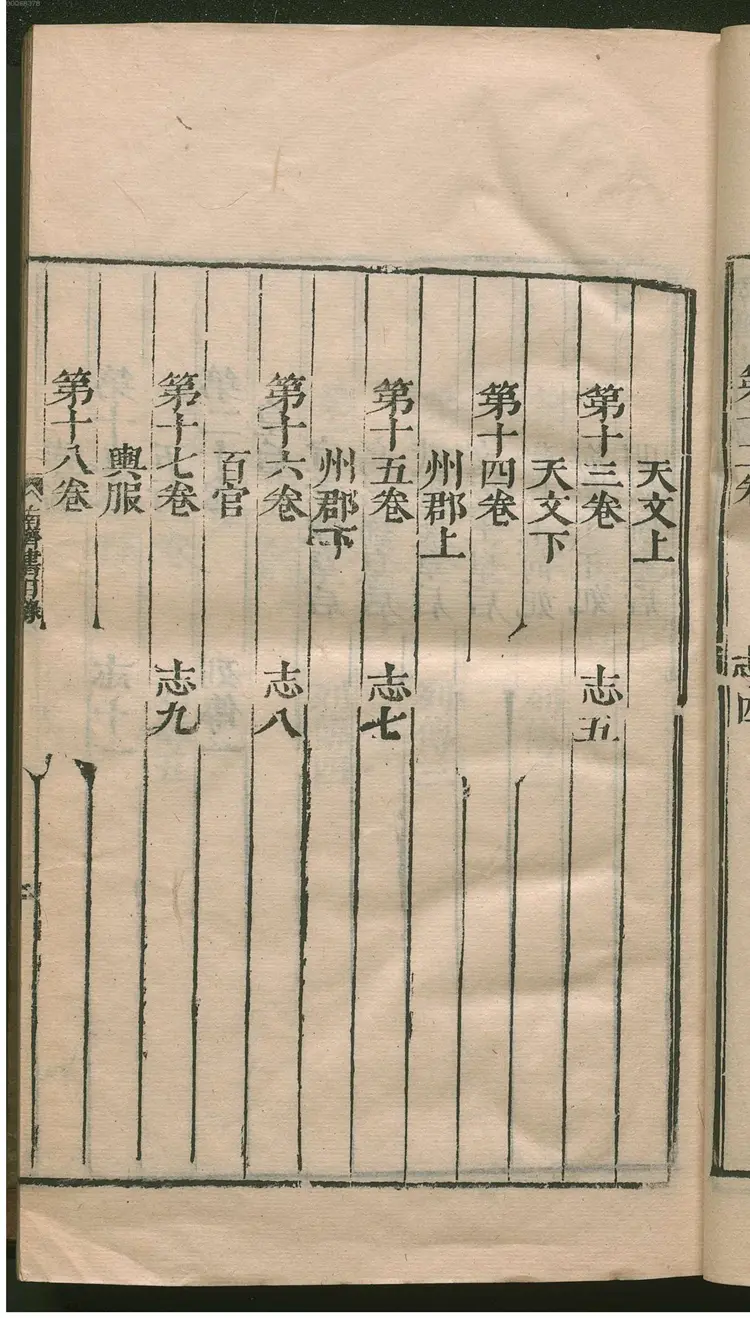 天文上
第十三卷 志五
天文下
第十四卷
州郡上
第十五卷 志七
州郡下
第十六卷 志八
百官
第十七卷 志九
輿服
第十八卷
南齊書目錄